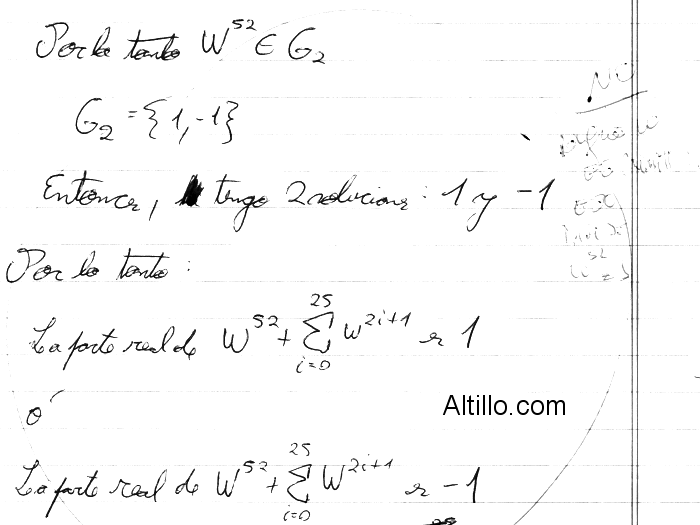 Por lo tanto W^52 ∈ G_2
G_2 = {1, -1}
NO
Entonces, tengo 2 soluciones: 1 y -1
Por lo tanto:
La parte real de W^52 + Σ_{i=0}^{25} W^{2i+1} es 1
ó
Altillo.com
La parte real de W^52 + Σ_{i=0}^{25} W^{2i+1} es -1